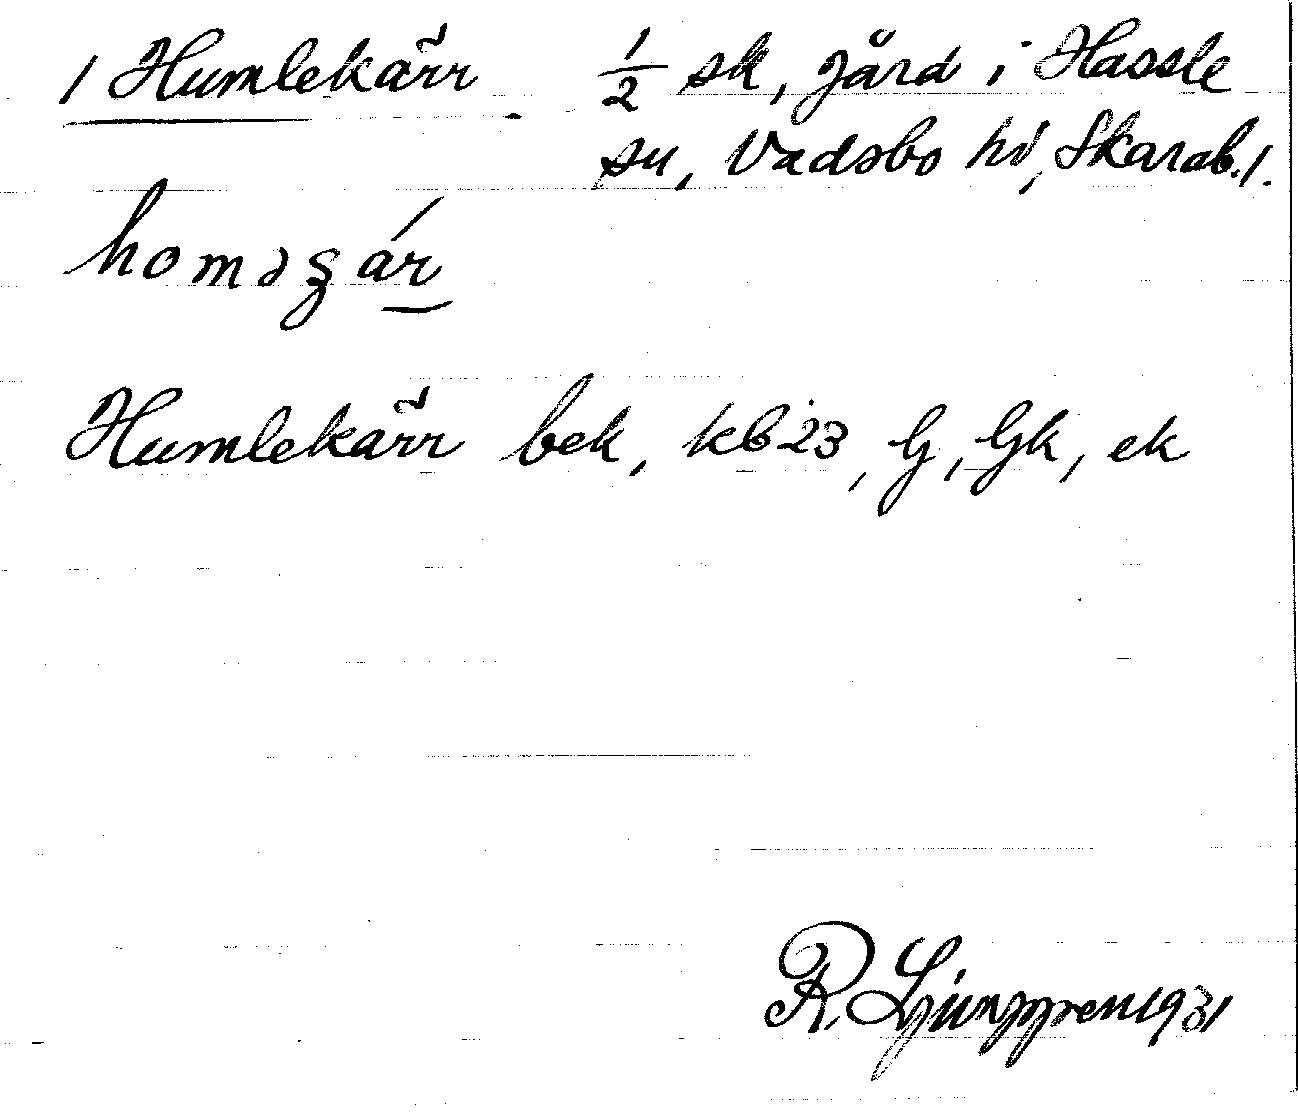 1 Humlekärr ½ sk, gård i Hassle
sn, Vadsbo hd, Skarab. l.
homəgár
Humlekärr bek, kb 23, G, Gk, ek
R. Ljunggren 1931